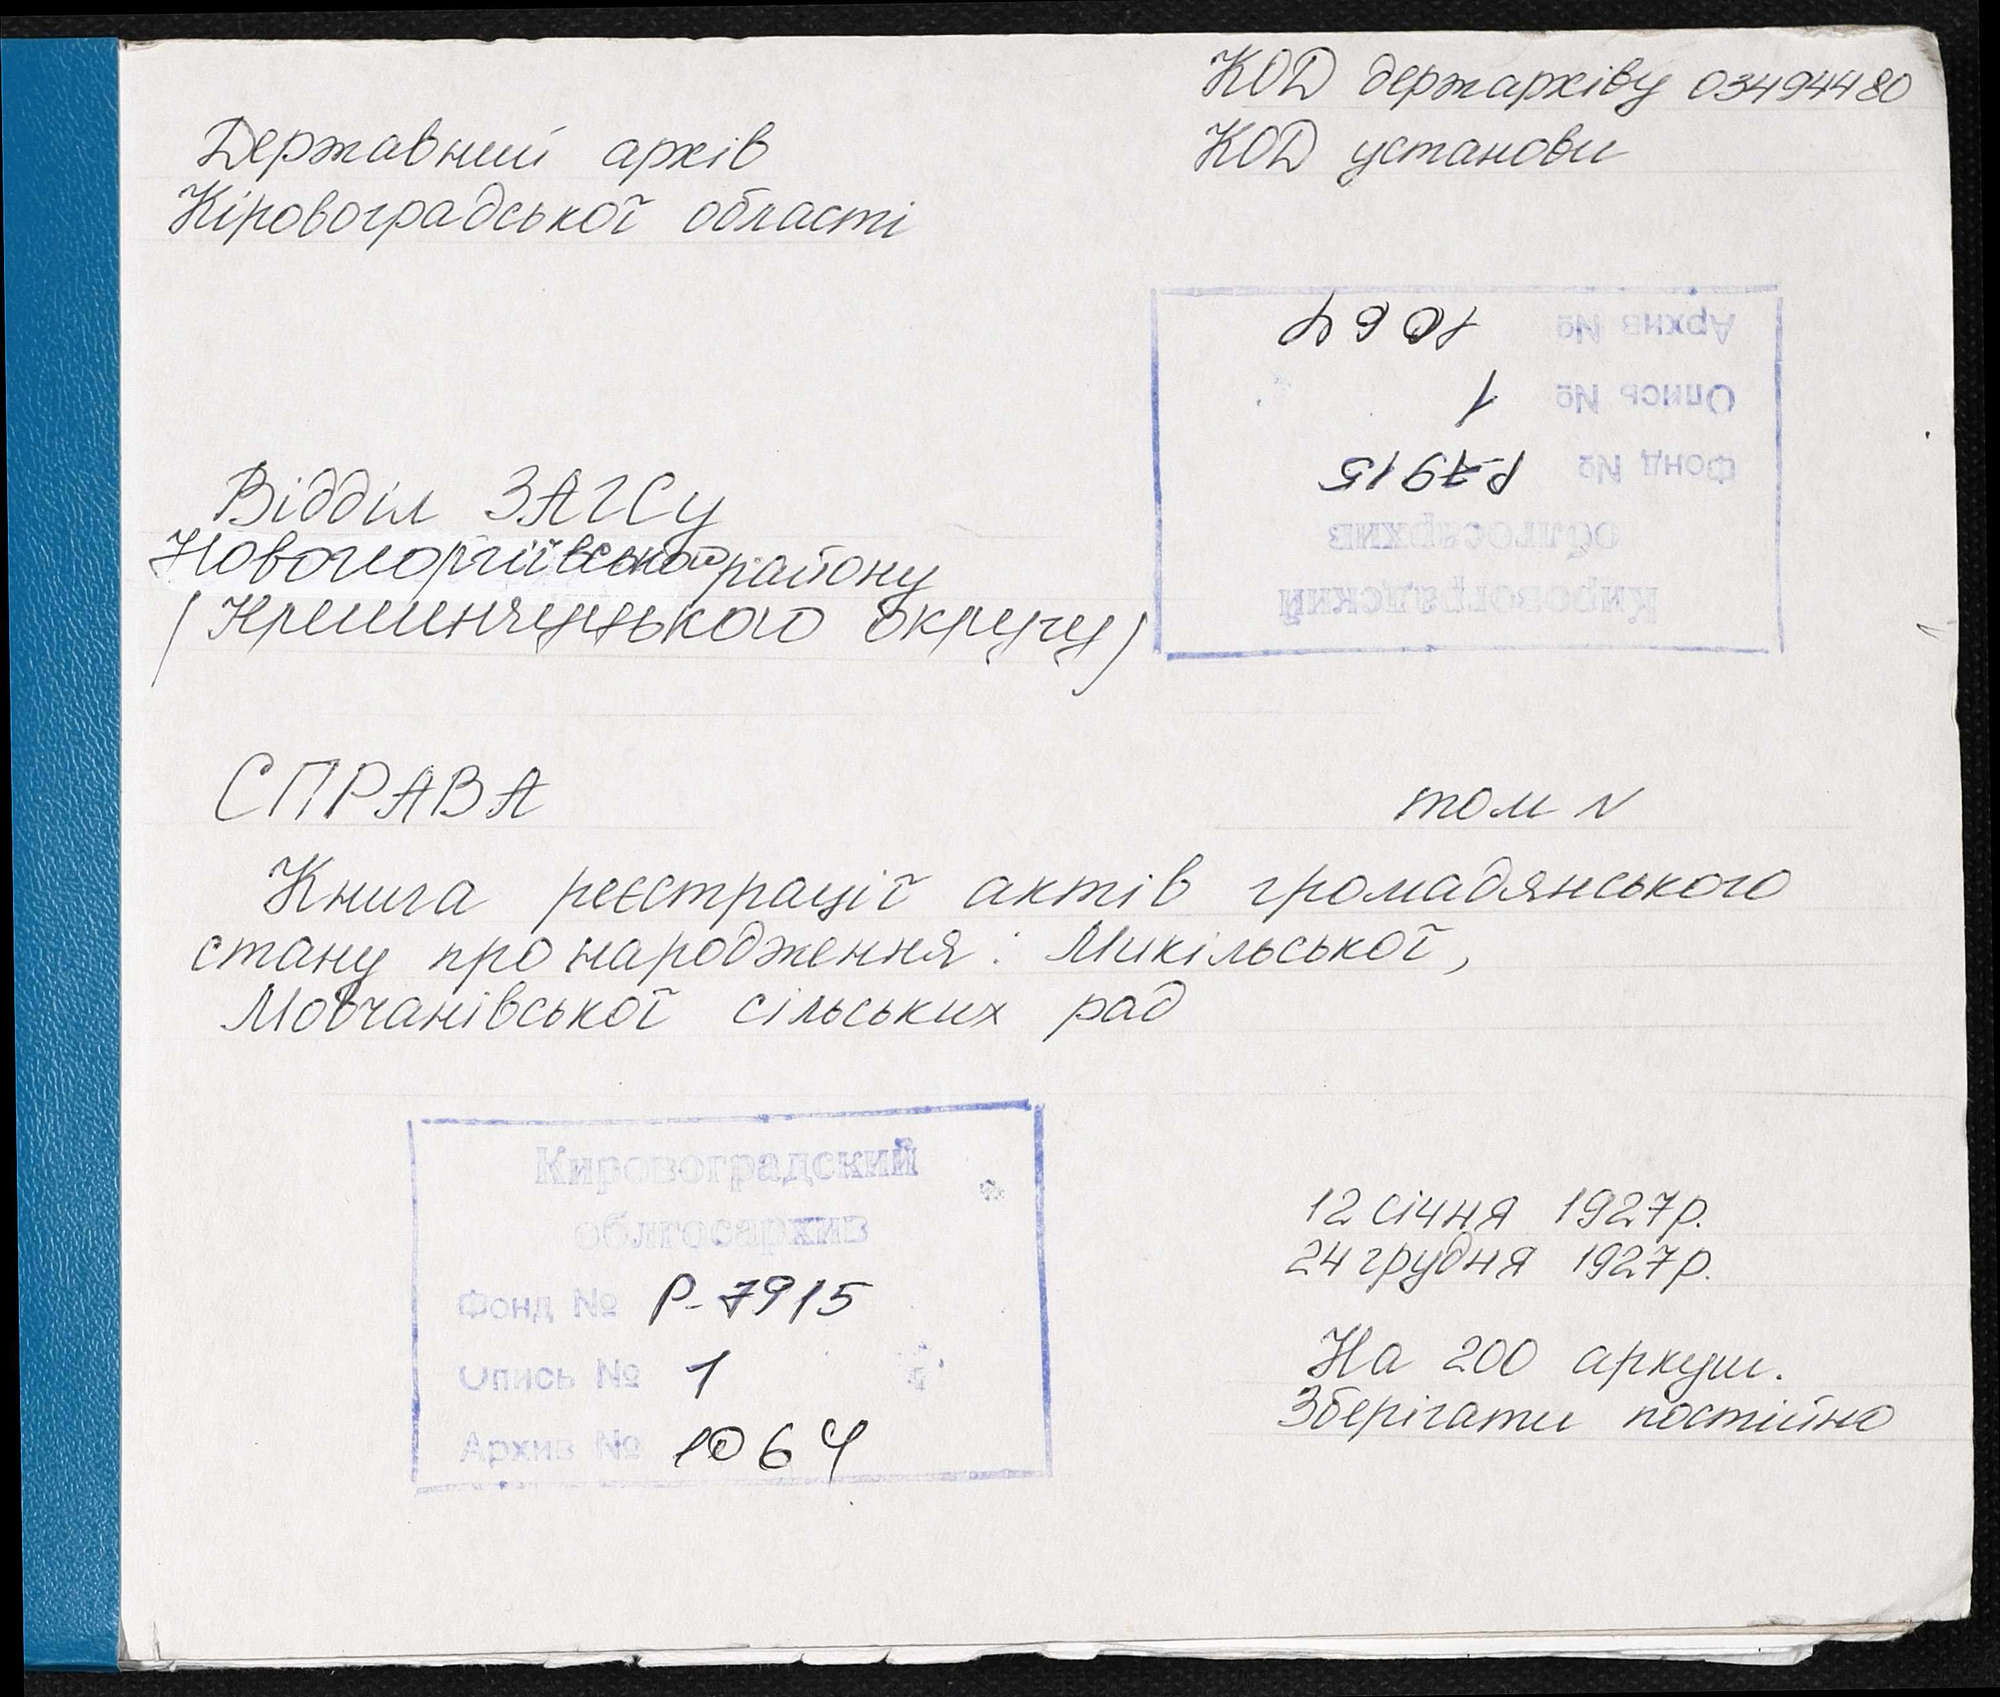 КОД держархіву 03494480
Державний архів
КОД установи
Кіровоградської області
Архив № 1064
Опись № 1
Фонд № Р-7915
облгосархив
Кировоградский
Відділ ЗАГСу
Новогеоргіївської району
(Кременчуцького округу)
СПРАВА
том N
Книга реєстрації актів громадянського
стану про народження: Микільської,
Мовчанівської сільських рад
Кировоградский
облгосархив
Фонд № Р-7915
Опись № 1
Архив № 1064
12 січня 1927р.
24 грудня 1927р.
На 200 аркуш.
Зберігати постійно